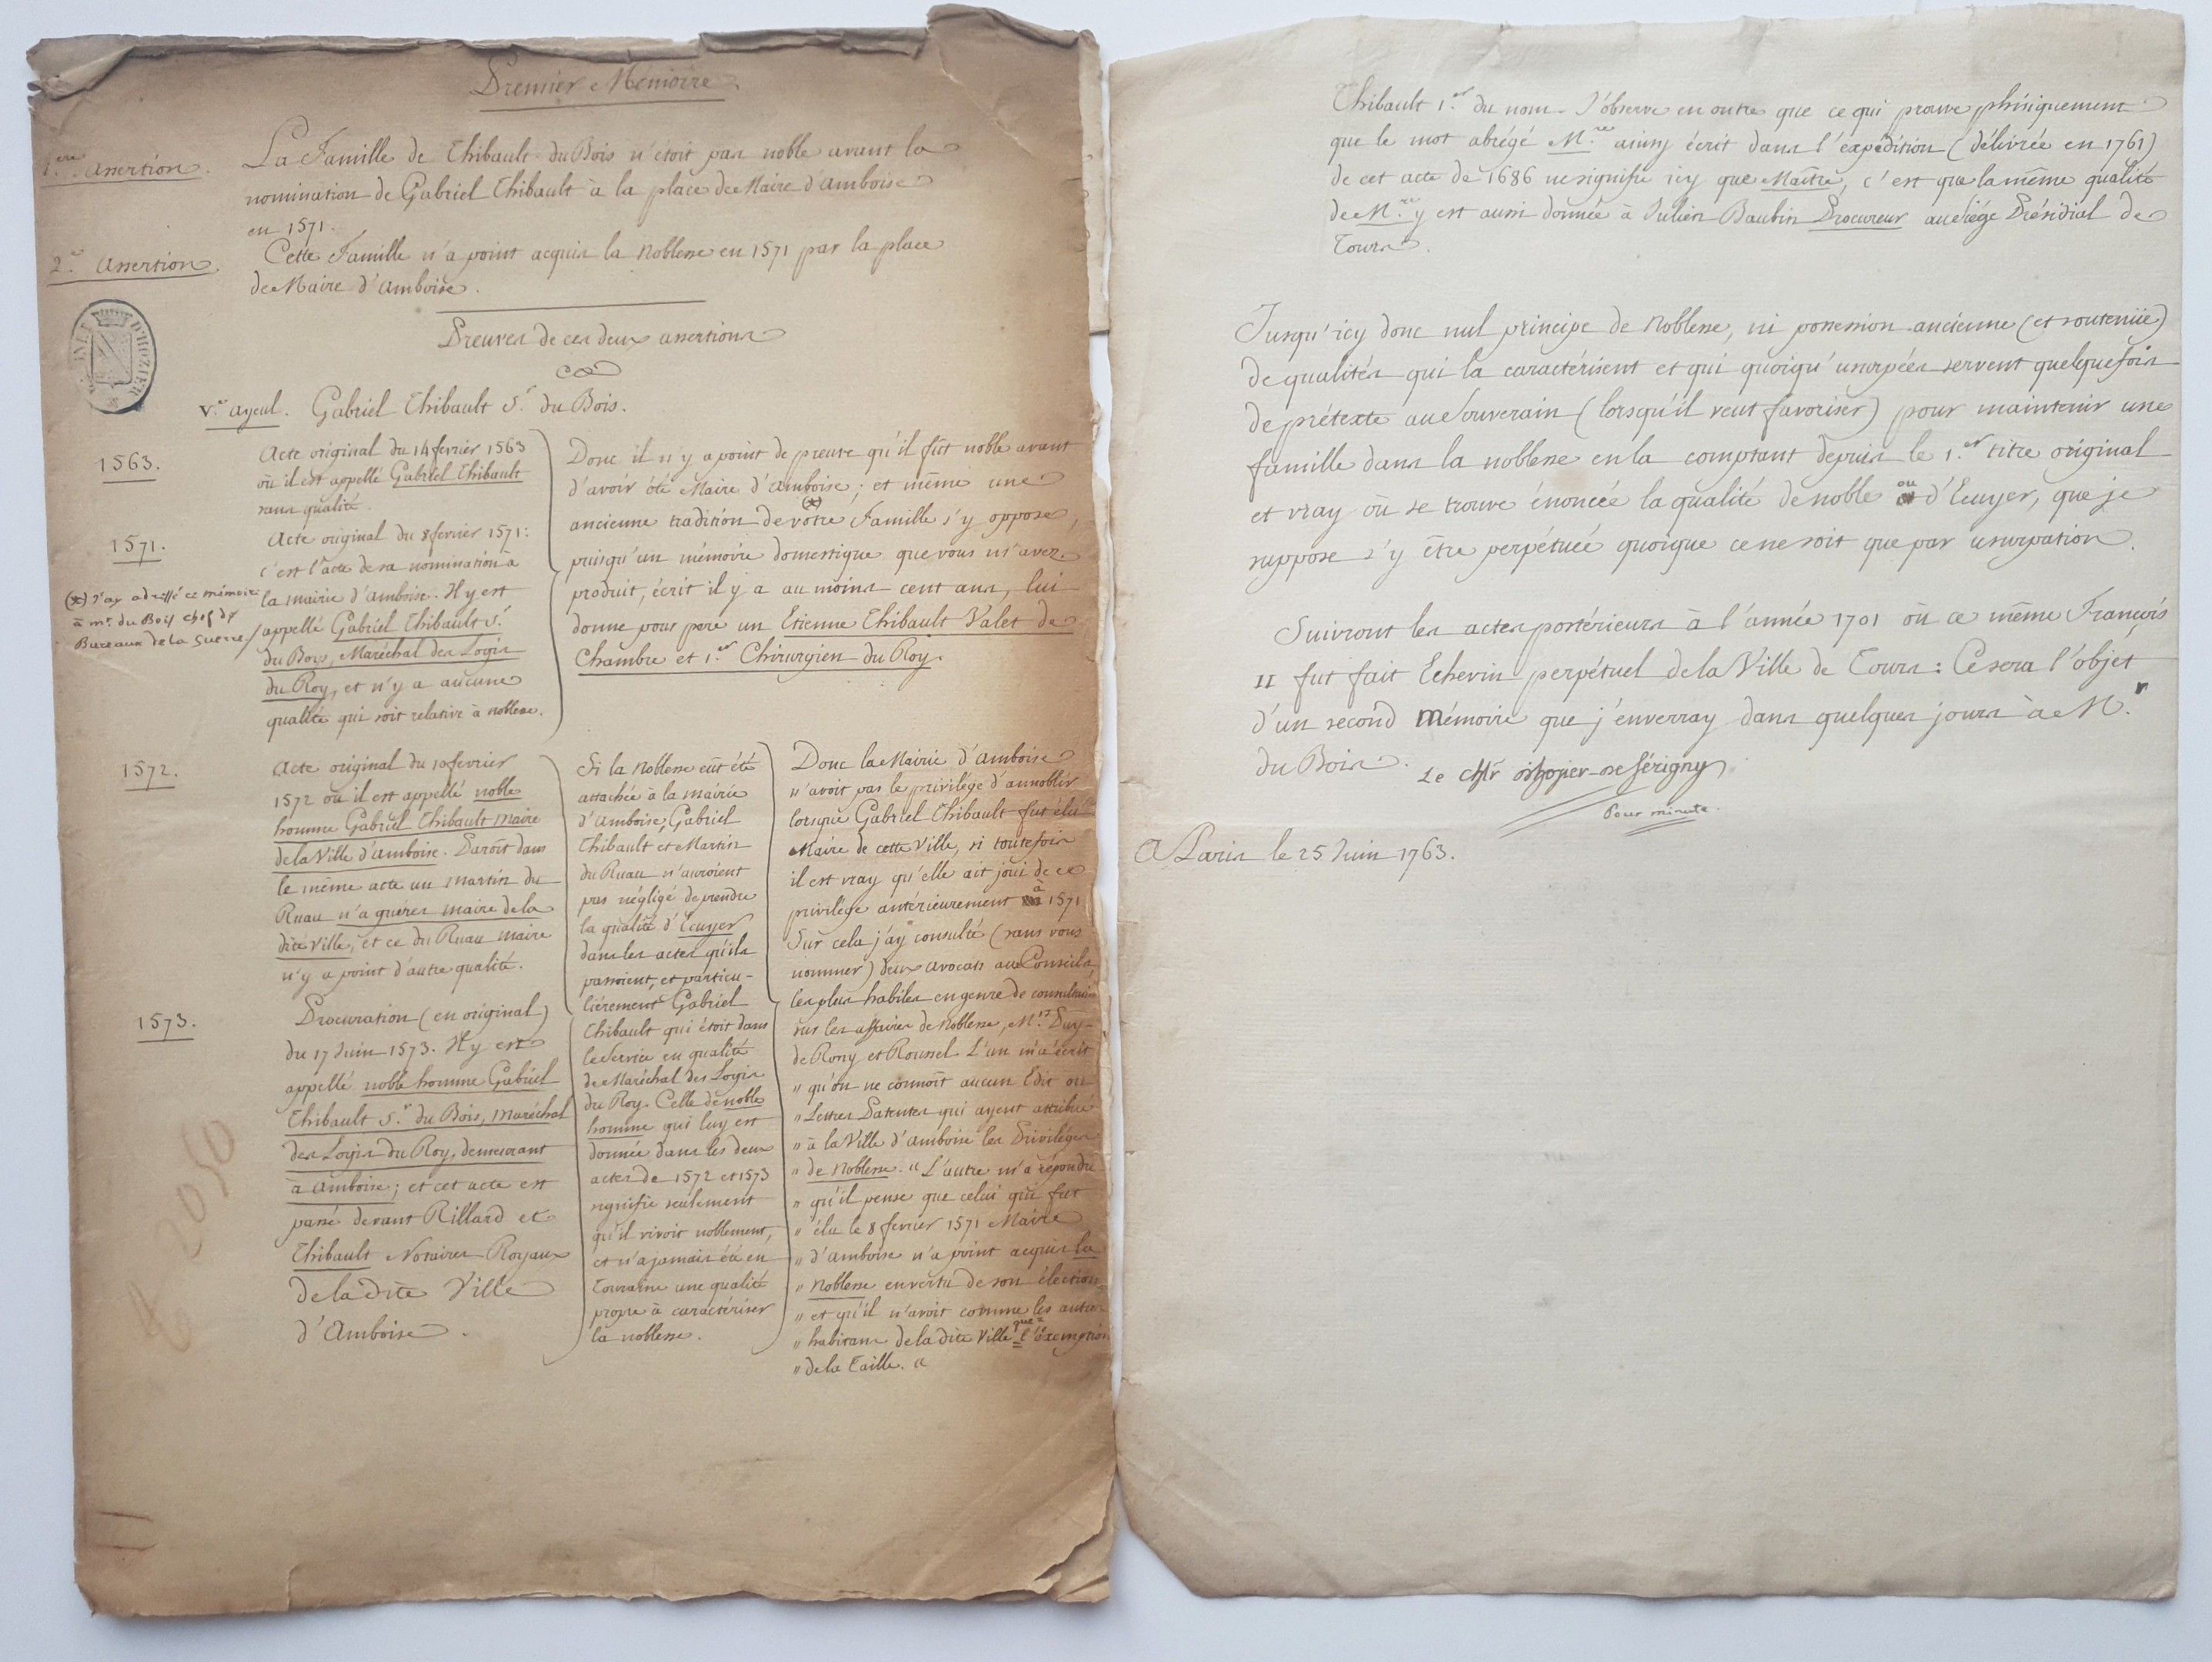 Premier Mémoire.
1.ere Assertion.
La Famille de Thibault du Bois n'étoit pas noble avant la
nomination de Gabriel Thibault à la place de Maire d'Amboise
en 1571.
2.e Assertion.
Cette Famille n'a point acquis la Noblesse en 1571 par la place
de Maire d'Amboise.
D'HOZIER
Preuves de ces deux assertions
V.e ayeul. Gabriel Thibault S.r du Bois.
1563.
Acte original du 14 fevrier 1563
où il est appellé Gabriel Thibault
sans qualité.
1571.
Acte original du 8 fevrier 1571:
c'est l'acte de sa nomination à
la mairie d'Amboise. Il y est
appellé Gabriel Thibault S.r
du Bois, Maréchal des Logis
du Roy, et n'y a aucune
qualité qui soit relative à noblesse.
(*) J'ay adressé ce mémoire
à mr. du Bois chef des
Bureaux de la Guerre.
Donc il n'y a point de preuve qu'il fût noble avant
d'avoir été Maire d'Amboise; et même une
ancienne tradition de votre (*) Famille s'y oppose,
puisqu'un mémoire domestique que vous m'avez
produit, écrit il y a au moins cent ans, lui
donne pour pere un Etienne Thibault Valet de
Chambre et 1.er Chirurgien du Roy.
1572.
Acte original du 10 fevrier
1572 où il est appellé noble
homme Gabriel Thibault Maire
de la Ville d'Amboise. Paroit dans
le même acte un Martin du
Ruau n'agueres maire de la
dite Ville, et ce du Ruau maire
n'y a point d'autre qualité.
1573.
Procuration (en original)
du 17 Juin 1573. Il y est
appellé noble homme Gabriel
Thibault S.r du Bois, Maréchal
des Logis du Roy, demeurant
à Amboise; et cet acte est
passé devant Rillard et
Thibault Notaires Royaux
de la dite Ville
d'Amboise.
Si la Noblesse eût été
attachée à la mairie
d'Amboise, Gabriel
Thibault et Martin
du Ruau n'auroient
pas négligé de prendre
la qualité d'Ecuyer
dans les actes qu'ils
passoient, et particu-
lièrement Gabriel
Thibault qui étoit dans
le Service en qualité
de Maréchal des Logis
du Roy. Celle de noble
homme qui luy est
donnée dans les deux
actes de 1572 et 1573
signifie seulement
qu'il vivoit noblement,
et n'a jamais été en
Touraine une qualité
propre à caractériser
la noblesse.
Donc la Mairie d'Amboise
n'avoit pas le privilége d'annoblir
lorsque Gabriel Thibault fut élu
Maire de cette Ville, si toutefois
il est vray qu'elle ait joui de ce
privilége antérieurement à 1571
Sur cela j'ay consulté (sans vous
nommer) deux Avocats aux Conseils,
les plus habiles en genre de consultations
sur les affaires de Noblesse, M.rs Puy-
de Rony et Roussel. L'un m'a écrit
" qu'on ne connoît aucun Edit ou
" Lettres Patentes qui ayent attribué
" à la Ville d'Amboise les Priviléges
" de Noblesse. " L'autre m'a répondu
" qu'il pense que celui qui fut
" élu le 8 fevrier 1571 Maire
" d'Amboise n'a point acquis la
" Noblesse en vertu de son élection,
" et qu'il n'avoit comme les autres
" habitans de la dite Ville que l'exemption
" de la Taille. "
Thibault 1.er du nom. J'observe en outre que ce qui prouve phisiquement
que le mot abrégé M.re ainsy écrit dans l'expédition (délivrée en 1761)
de cet acte de 1686 ne signifie icy que Maître, c'est que la même qualité
de M.re y est aussi donnée à Julien Baubin Procureur au siége Présidial de
Tours.
Jusqu'icy donc nul principe de Noblesse, ni possession ancienne (et soutenüe)
de qualités qui la caractérisent et qui quoiqu'usurpées servent quelquefois
de prétexte au Souverain (lorsqu'il veut favoriser) pour maintenir une
famille dans la noblesse en la comptant depuis le 1.er titre original
et vray où se trouve énoncée la qualité de noble ou d'Ecuyer, que je
suppose s'y être perpétuée quoique ce ne soit que par usurpation.
Suivront les actes postérieurs à l'année 1701 où ce même François
II fut fait Echevin perpétuel de la Ville de Tours: Ce sera l'objet
d'un second Mémoire que j'enverray dans quelques jours à M.r
du Bois.
Le chlr d'hozier de Sérigny
Pour minute.
A Paris le 25 Juin 1763.